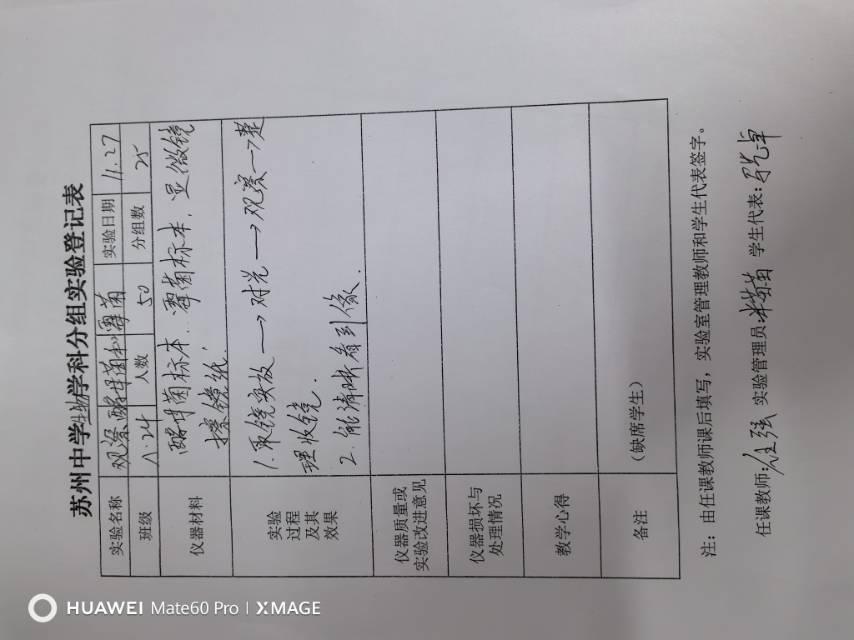 苏州中学生物学科分组实验登记表
实验名称 观察酵母菌和霉菌 实验日期 11.27
班级 八.24 人数 50 分组数 25
仪器材料 酵母菌标本、霉菌标本、显微镜
擦镜纸.
实验
过程
及其
效果
1.取镜安放→对光→观察→整
理收镜.
2.能清晰看到像.
仪器质量或
实验改进意见
仪器损坏与
处理情况
教学心得
备注
(缺席学生)
注:由任课教师课后填写,实验室管理教师和学生代表签字。
任课教师: 实验管理员: 学生代表:
HUAWEI Mate60 Pro | XMAGE